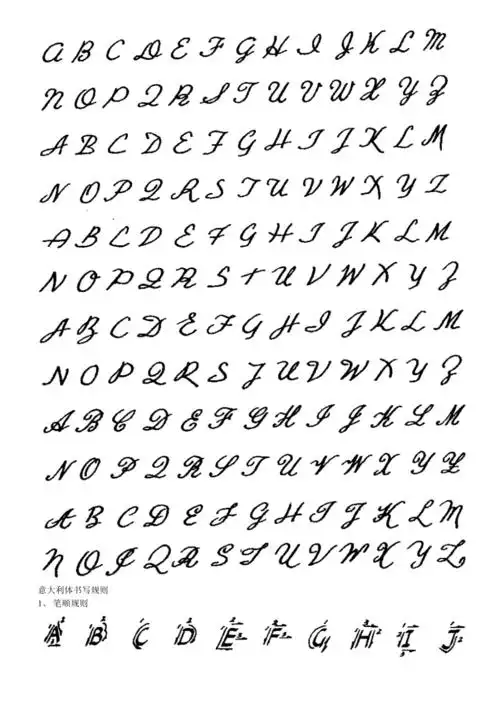 A B C D E F G H I J K L M
N O P Q R S T U V W X Y Z
A B C D E F G H I J K L M
N O P Q R S T U V W X Y Z
A B C D E F G H I J K L M
N O P Q R S T U V W X Y Z
A B C D E F G H I J K L M
N O P Q R S T U V W X Y Z
A B C D E F G H I J K L M
N O P Q R S T U V W X Y Z
A B C D E F G H I J K L M
N O P Q R S T U V W X Y Z
意大利体书写规则
1、 笔顺规则
A B C D E F G H I J